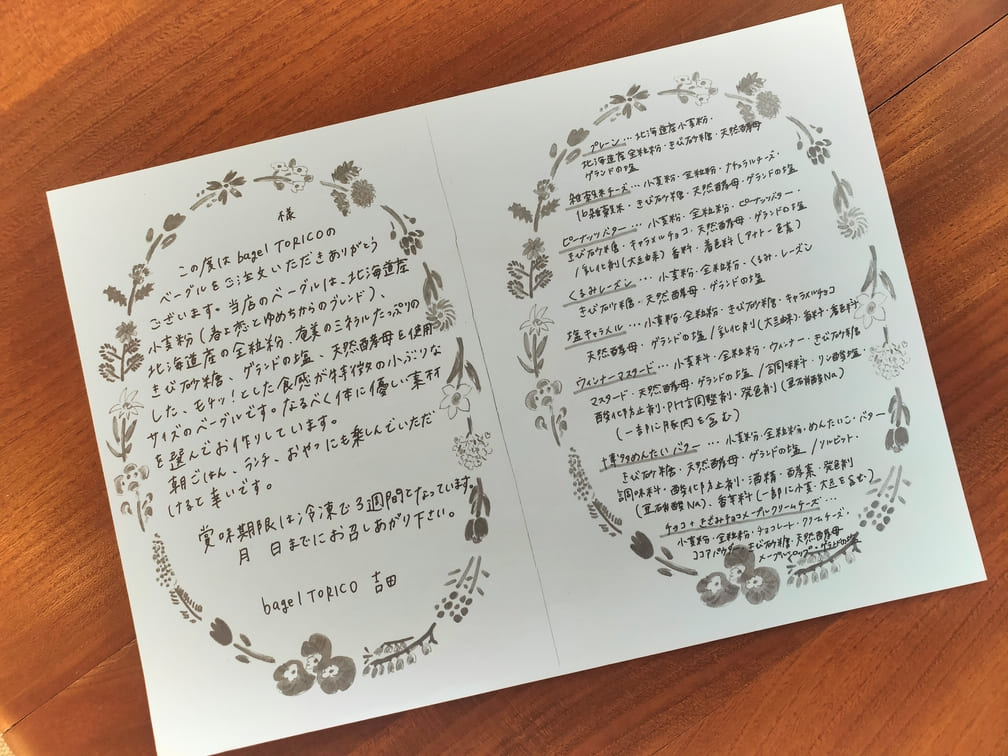 様
この度は bagel TORICOの
ベーグルをご注文いただきありがとう
ございます。当店のベーグルは、北海道産
小麦粉(春よ恋とゆめちからのブレンド)、
北海道産の全粒粉、奄美のミネラルたっぷりの
きび砂糖、ゲランドの塩、天然酵母を使用
した、モチッ!とした食感が特徴の小ぶりな
サイズのベーグルです。なるべく体に優しい素材
を選んでお作りしています。
朝ごはん、ランチ、おやつにも楽しんでいただ
けると幸いです。
賞味期限は冷凍で3週間となっています。
月 日までにお召しあがり下さい。
bagel TORICO 吉田
プレーン…北海道産小麦粉・
北海道産全粒粉・きび砂糖・天然酵母
ゲランドの塩
雑穀米チーズ…小麦粉・全粒粉・ナチュラルチーズ・
16雑穀米・きび砂糖・天然酵母・ゲランドの塩
ピーナッツバター…小麦粉・全粒粉・ピーナッツバター・
きび砂糖・キャラメルチョコ・天然酵母・ゲランドの塩
/乳化剤(大豆由来)香料・着色料(アナトー色素)
くるみレーズン…小麦粉・全粒粉・くるみ・レーズン
きび砂糖・天然酵母・ゲランドの塩
塩キャラメル…小麦粉・全粒粉・きび砂糖・キャラメルチョコ
天然酵母・ゲランドの塩/乳化剤(大豆由来)香料・着色料
ウィンナーマスタード…小麦粉・全粒粉・ウィンナー・きび砂糖
マスタード・天然酵母・ゲランドの塩/調味料・リン酸塩・
酸化防止剤・PH調整剤・発色剤(亜硝酸Na)
(一部に豚肉を含む)
博多めんたいバター…小麦粉・全粒粉・めんたいこ・バター
きび砂糖・天然酵母・ゲランドの塩/ソルビット・
調味料・酸化防止剤・酒精・酵素・発色剤
(亜硝酸Na)、香辛料(一部に小麦・大豆を含む)
チョコ+きざみチョコメープルクリームチーズ…
小麦粉・全粒粉・チョコレート・クリームチーズ・
ココアパウダー・きび砂糖・天然酵母
メープルシロップ・ゲランドの塩